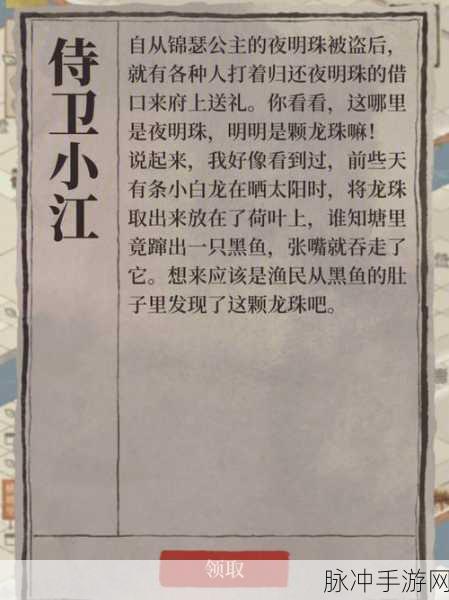 侍卫小江
自从锦瑟公主的夜明珠被盗后，
就有各种人打着归还夜明珠的借
口来府上送礼。你看看，这哪里
是夜明珠，明明是颗龙珠嘛！
说起来，我好像看到过，前些天
有条小白龙在晒太阳时，将龙珠
取出来放在了荷叶上，谁知塘里
竟蹿出一只黑鱼，张嘴就吞走了
它。想来应该是渔民从黑鱼的肚
子里发现了这颗龙珠吧。
领取
脉冲手游网